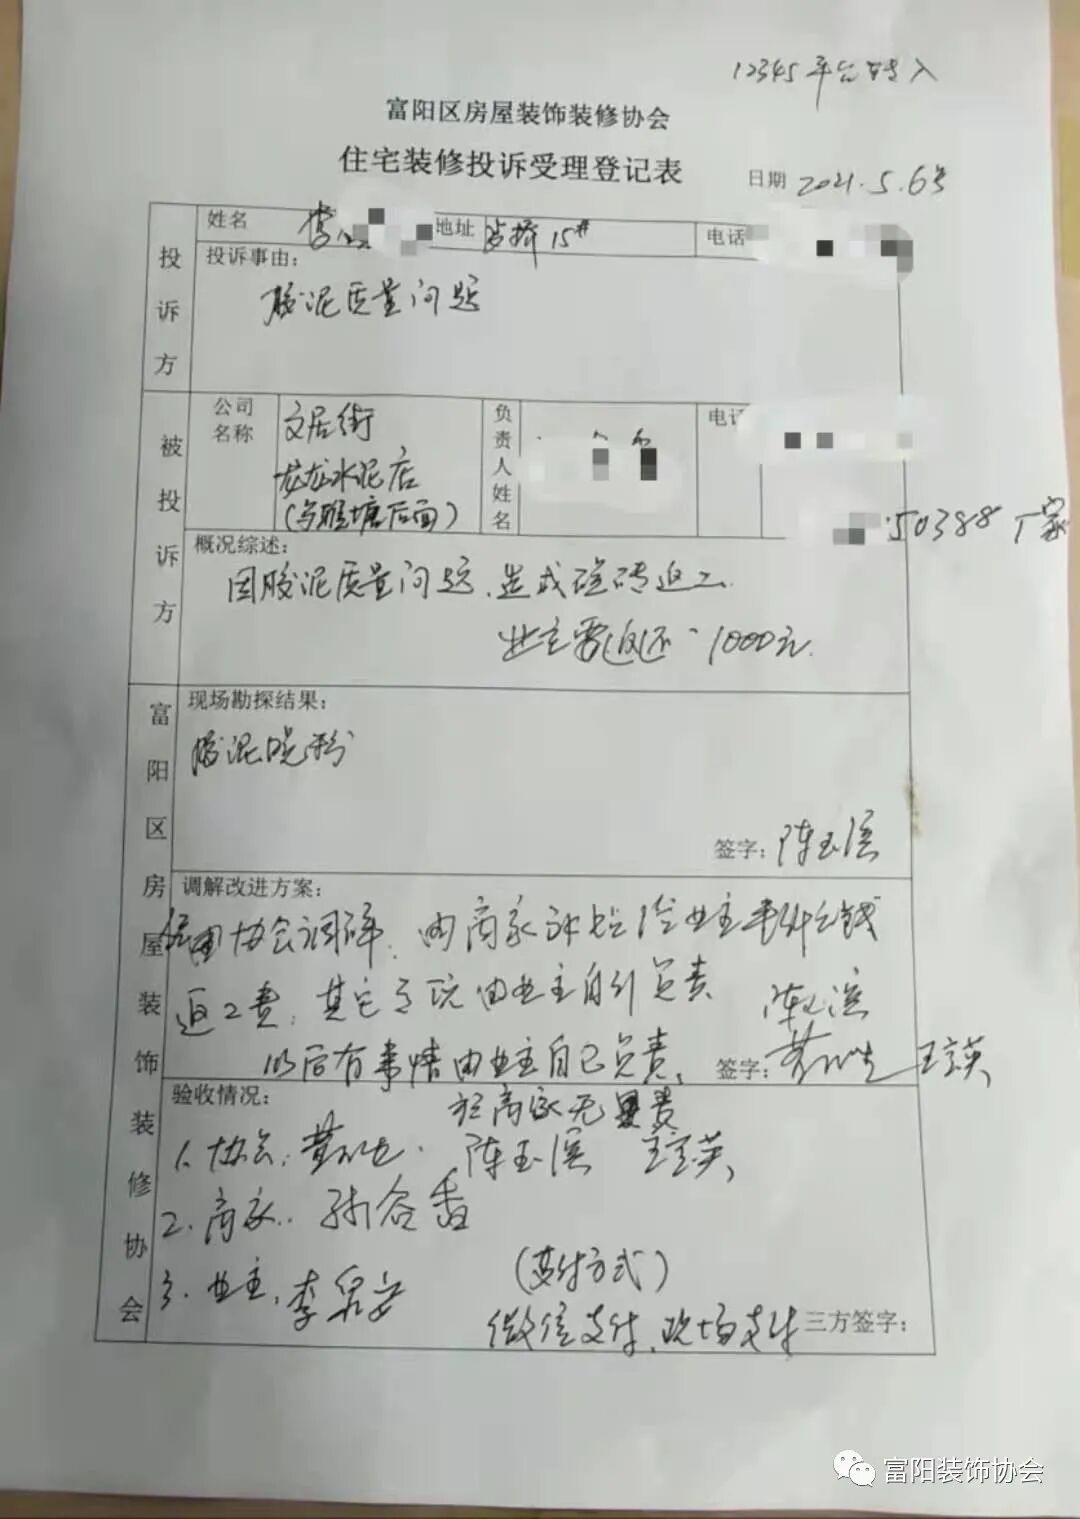 12345平台转入
富阳区房屋装饰装修协会
住宅装修投诉受理登记表
日期 2021.5.6号
投诉方
姓名 李 地址 15# 电话
投诉事由:
胶泥质量问题
被投诉方
公司名称 文居街
龙龙水泥店
(乌雅塘后面)
负责人姓名
电话
50388 厂家
概况综述:
因胶泥质量问题、造成磁砖返工
业主需返还 1000元.
富阳区房屋装饰装修协会
现场勘探结果:
胶泥脱粉
签字: 陈玉溪
调解改进方案:
协会调解、由商家补贴给业主 钱
返工费, 其它 由业主自行负责
以后有事情由业主自己负责、
与商家无 责
签字: 陈玉溪 黄 王 英
验收情况:
1、协会: 黄 陈玉溪 王 英
2、商家: 孙谷香
3、业主, 李泉安
(支付方式)
微信支付、现场支付
三方签字:
富阳装饰协会